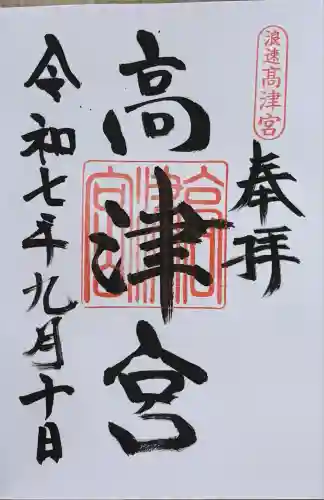 浪速高津宮
奉拝
高津宮
令和七年九月十日
高津宮